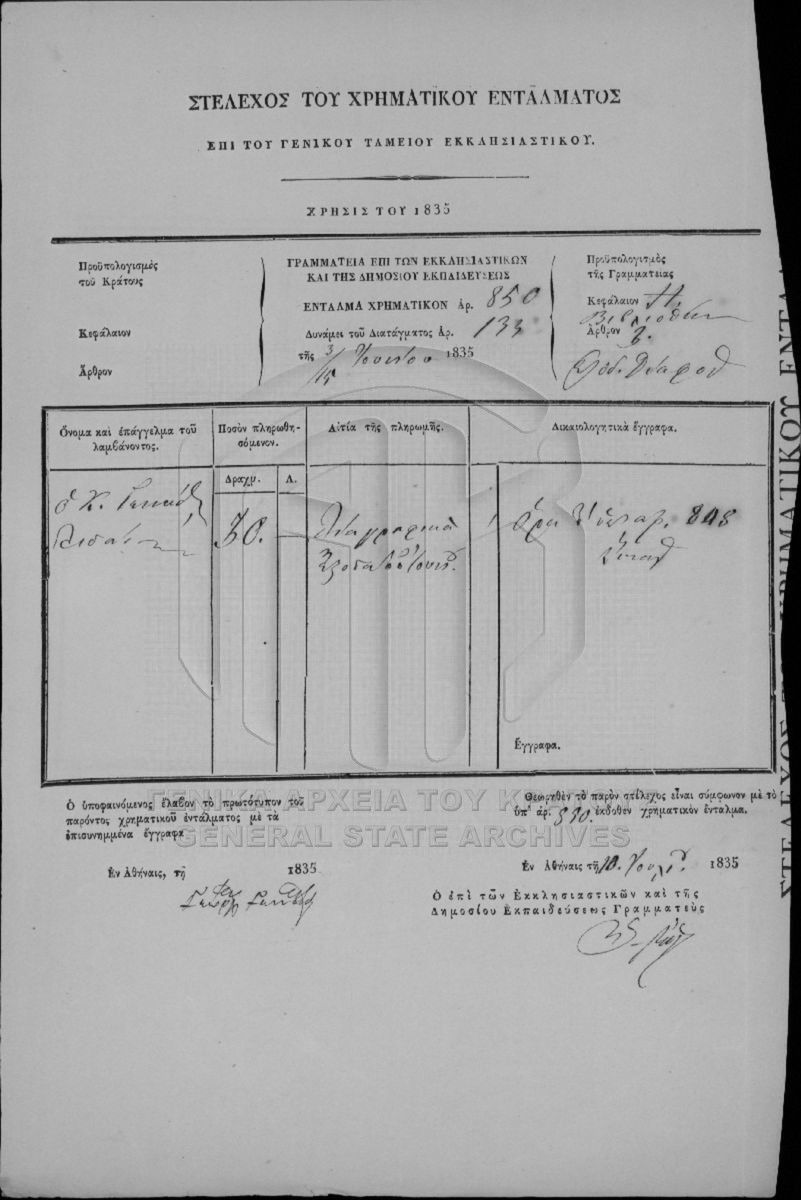 ΣΤΕΛΕΧΟΣ ΤΟΥ ΧΡΗΜΑΤΙΚΟΥ ΕΝΤΑΛΜΑΤΟΣ
ΕΠΙ ΤΟΥ ΓΕΝΙΚΟΥ ΤΑΜΕΙΟΥ ΕΚΚΛΗΣΙΑΣΤΙΚΟΥ.
ΧΡΗΣΙΣ ΤΟΥ 1835
Προϋπολογισμὸς
τοῦ Κράτους
Κεφάλαιον
Ἄρθρον
ΓΡΑΜΜΑΤΕΙΑ ΕΠΙ ΤΩΝ ΕΚΚΛΗΣΙΑΣΤΙΚΩΝ
ΚΑΙ ΤΗΣ ΔΗΜΟΣΙΟΥ ΕΚΠΑΙΔΕΥΣΕΩΣ
ΕΝΤΑΛΜΑ ΧΡΗΜΑΤΙΚΟΝ Ἀρ. 850
Δυνάμει τοῦ Διατάγματος Ἀρ. 133
τῆς 3/15 Ἰουνίου 1835
Προϋπολογισμὸς
τῆς Γραμματείας
Κεφάλαιον Η.
Ἄρθρον 3.
Ὄνομα καὶ ἐπάγγελμα τοῦ
λαμβάνοντος.
Ποσὸν πληρωθη-
σόμενον.
Δραχμ. Λ.
Αἰτία τῆς πληρωμῆς.
Δικαιολογητικὰ ἔγγραφα.
ὁ Κ.
30. —
848
Ἔγγραφα.
Ὁ ὑποφαινόμενος ἔλαβον τὸ πρωτότυπον τοῦ
παρόντος χρηματικοῦ ἐντάλματος μὲ τὰ
ἐπισυνημμένα ἔγγραφα
Ἐν Ἀθήναις, τῇ 1835
Θεωρηθὲν τὸ παρὸν στέλεχος εἶναι σύμφωνον μὲ τὸ
ὑπ' ἀρ. ἐκδοθὲν χρηματικὸν ἔνταλμα.
Ἐν Ἀθήναις τῇ 10. 1835
Ὁ ἐπὶ τῶν Ἐκκλησιαστικῶν καὶ τῆς
Δημοσίου Ἐκπαιδεύσεως Γραμματεὺς
ΓΕΝΙΚΑ ΑΡΧΕΙΑ ΤΟΥ ΚΡΑΤΟΥΣ
GENERAL STATE ARCHIVES